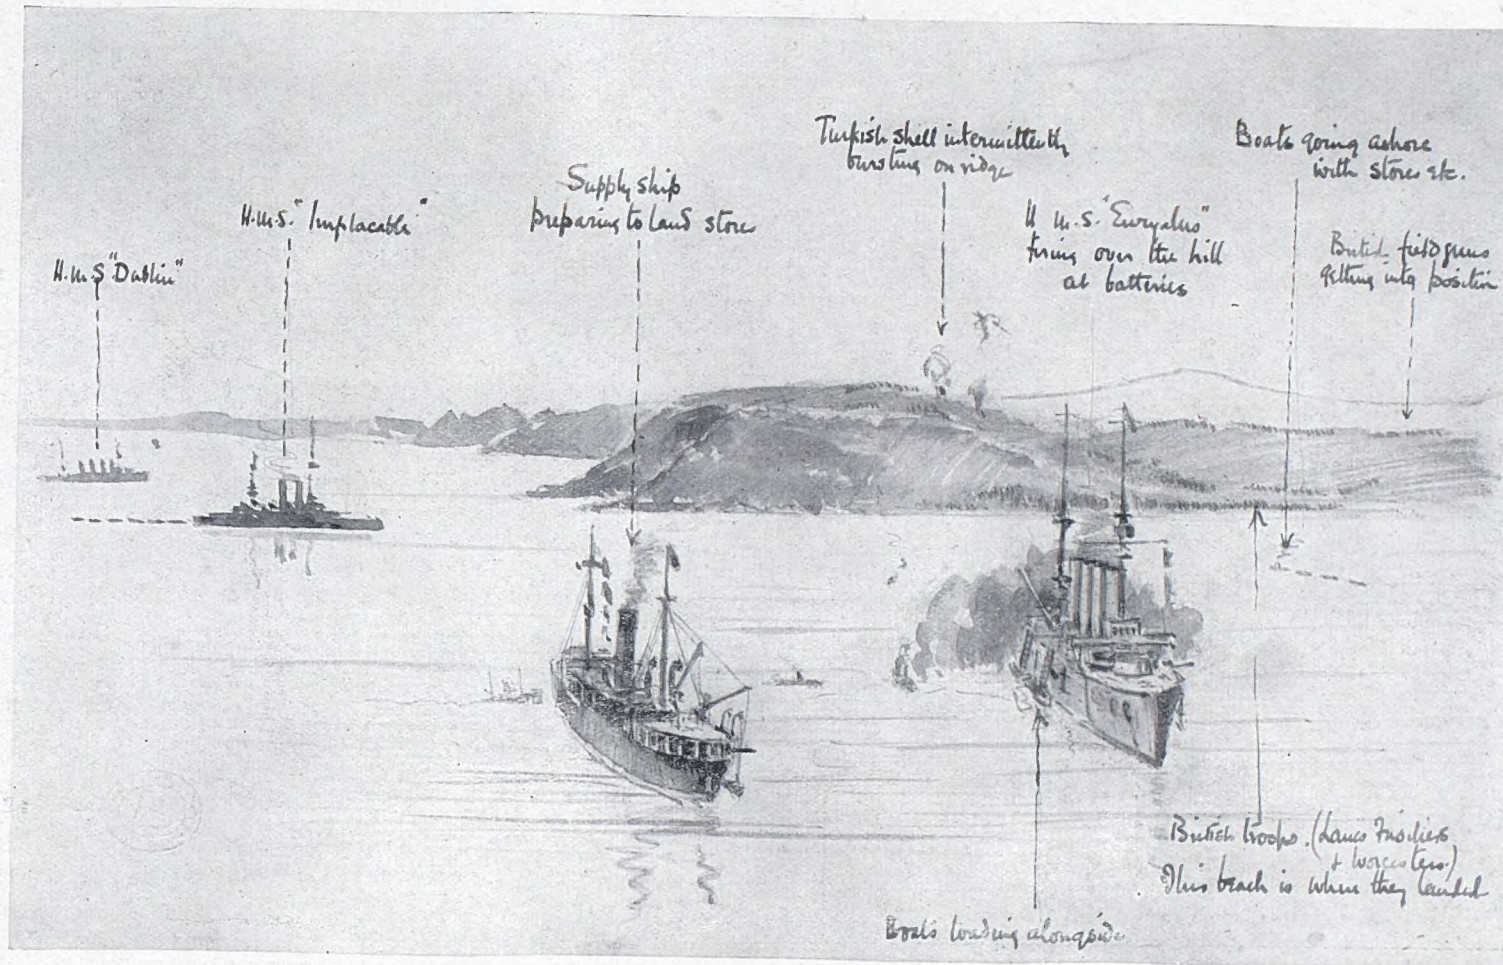 H.M.S "Dublin"
H.M.S. "Implacable"
Supply ship
preparing to land stores
Turkish shell intermittently
bursting on ridge
H M.S. "Euryalus"
firing over the hill
at batteries
Boats going ashore
with stores etc.
British field guns
getting into position
British troops. (Lancs Fusiliers
& Worcesters.)
This beach is where they landed
Boats loading alongside